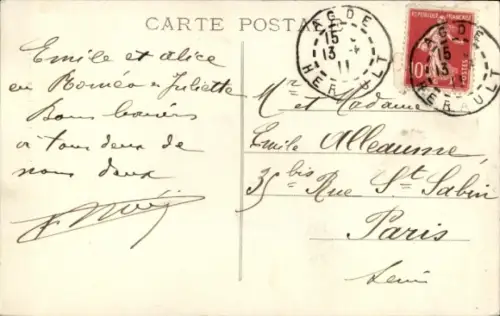 CARTE POSTALE
AGDE
15
13 -4
11
HERAULT
REPUBLIQUE FRANÇAISE
10
POSTES
AGDE
15
13
HERAULT
Emile et alice
en Roméo & Juliette
Bons baisers
à tous deux de
nous deux
Mr et Madame
Emile Alleaume
35 bis Rue St Sabin
Paris